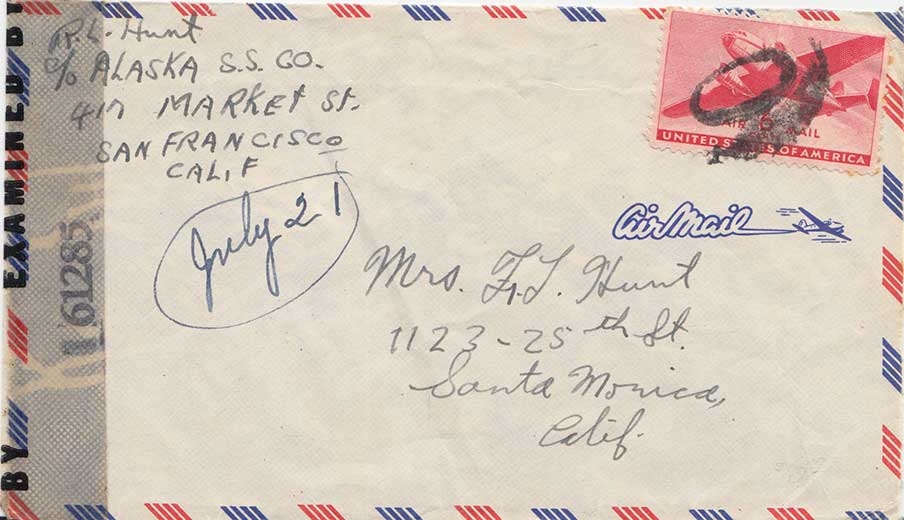 R. L. Hunt
c/o ALASKA S.S. CO.
417 MARKET St.
SAN FRANCISCO
CALIF
July 21
AIR 6 MAIL
UNITED STATES OF AMERICA
Air Mail
Mrs. F. L. Hunt
1123-25th St.
Santa Monica,
Calif.
BY EXAMINED BY
61285